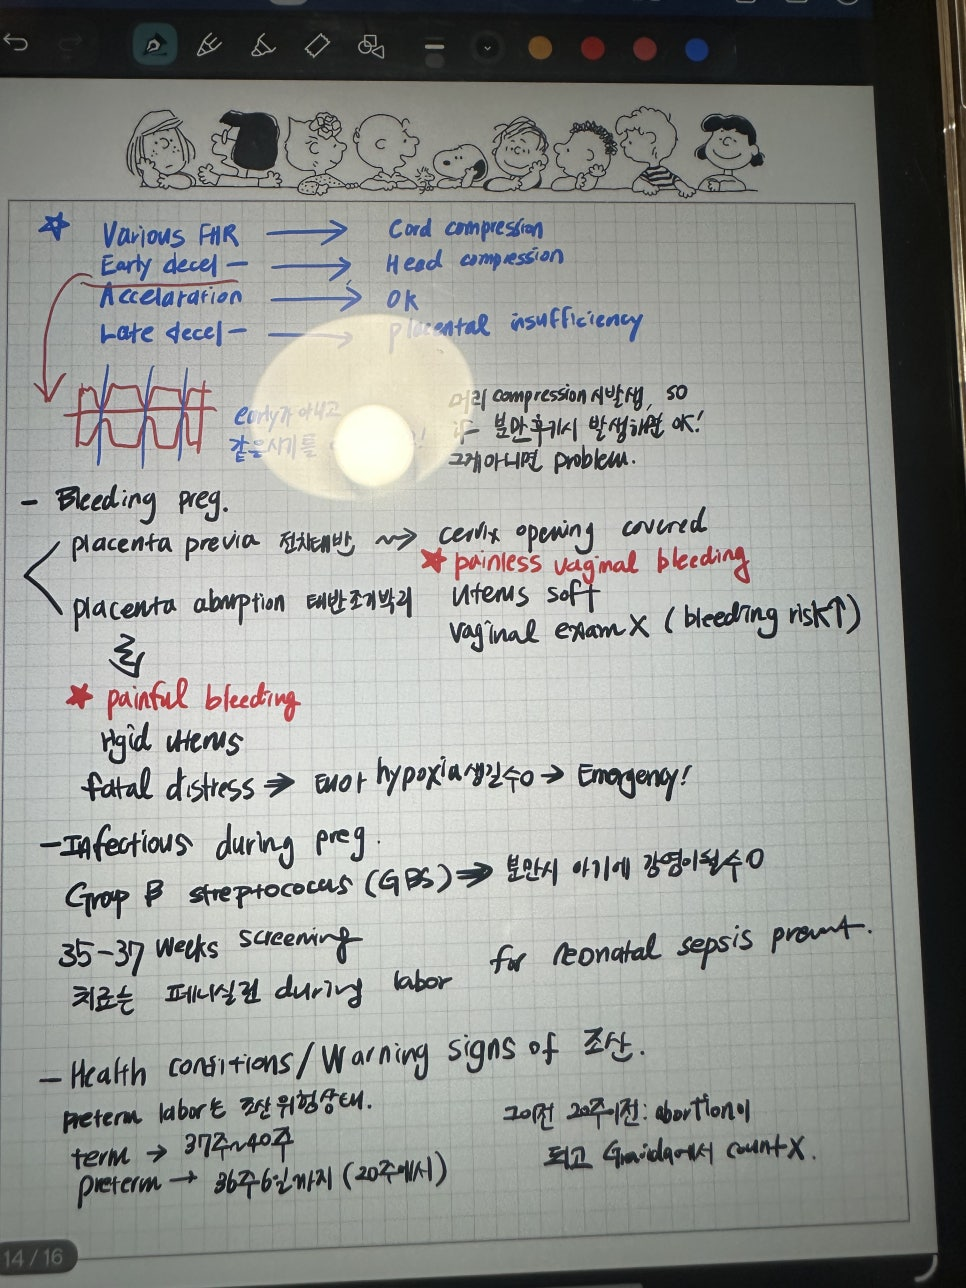 Various FHR → Cord compression
Early decel — → Head compression
Accelaration → OK
Late decel — → placental insufficiency
early가 아니고
같은시기를
머리 compression시발생, so
if 분만후기시 발생하면 OK!
그게아니면 problem.
- Bleeding preg.
placenta previa 전치태반 → cervix opening covered
★ painless vaginal bleeding
placenta abruption 태반조기박리
Uterus soft
vaginal exam X (bleeding risk↑)
★ painful bleeding
rigid uterus
fatal distress → 태아 hypoxia생길수O → Emergency!
- Infectious during preg.
Group B streptococus (GBS) → 분만시 아기에 감염이될수O
35-37 weeks screening
for neonatal sepsis prevent.
치료는 페니실린 during labor
- Health conditions/Warning signs of 조산.
preterm labor는 조산위험상태.
term → 37주~40주
preterm → 36주6일까지 (20주에서)
그이전 20주이전: abortion이
되고 Gravida에서 count X.
14 / 16